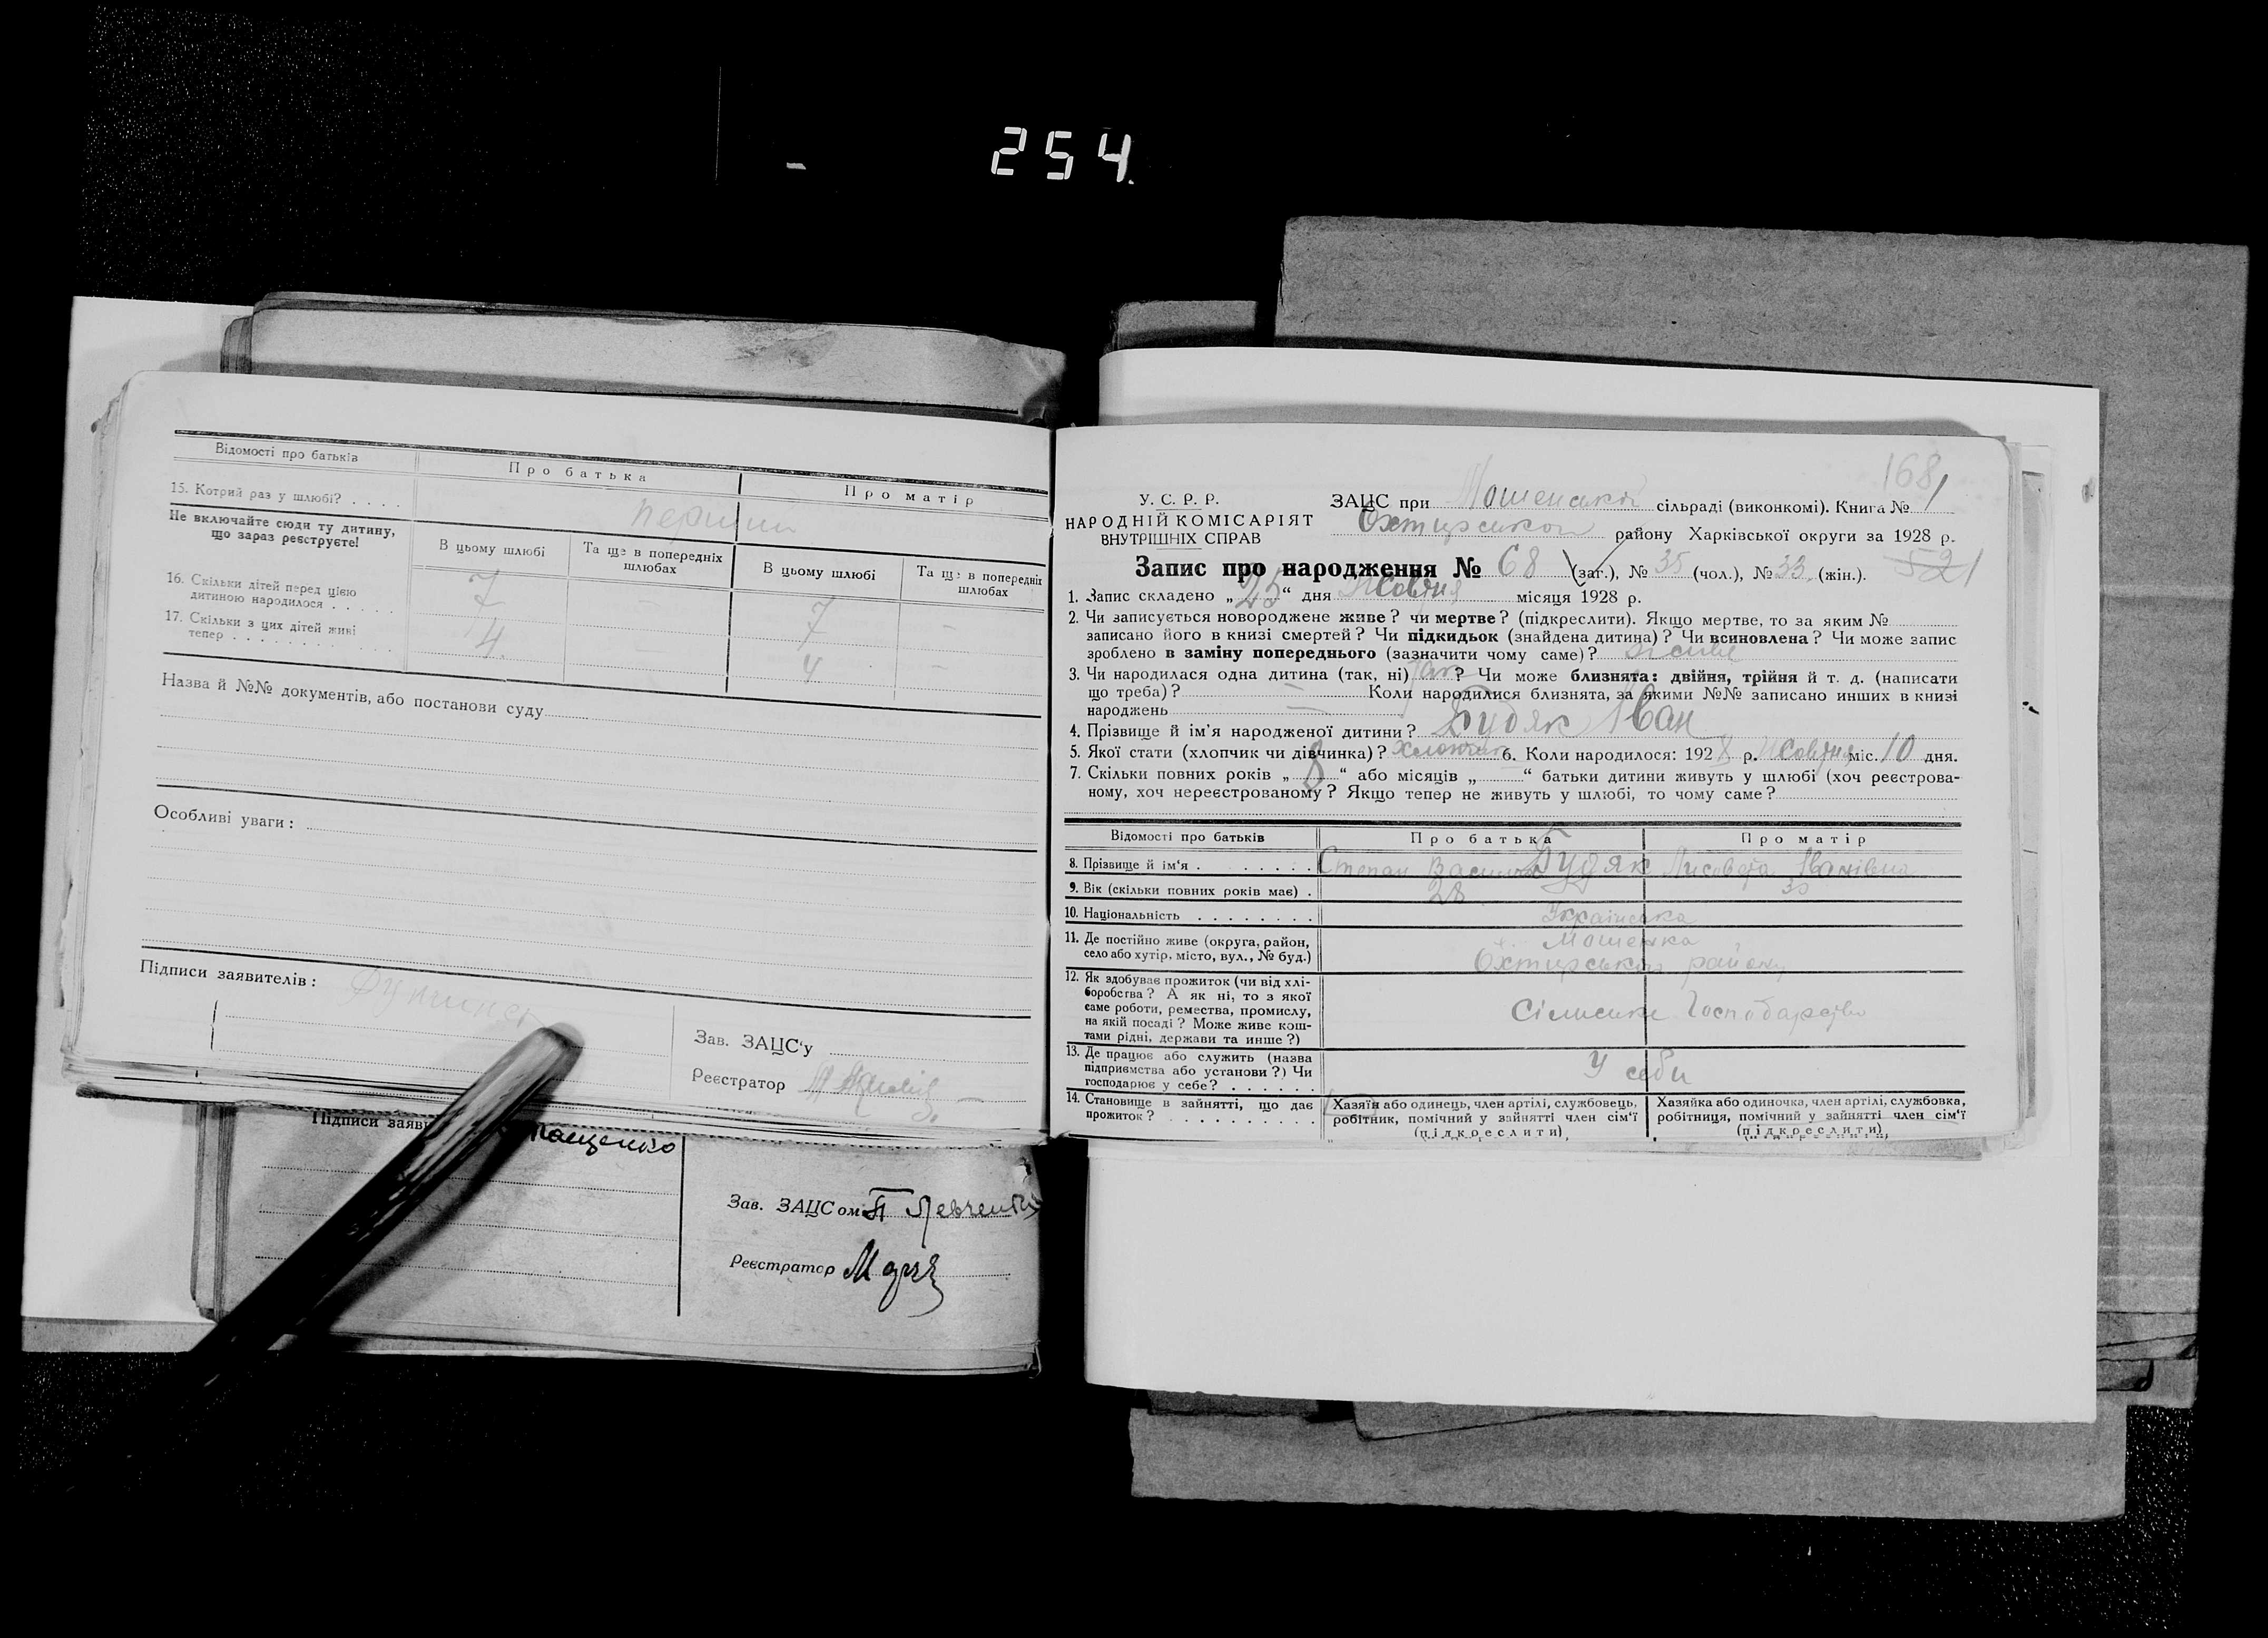 254.
Відомості про батьків
Про батька
Про матір
15. Котрий раз у шлюбі? . . . .
перший
Не включайте сюди ту дитину,
що зараз реєструєте!
В цьому шлюбі
Та ще в попередніх
шлюбах
В цьому шлюбі
Та ще в попередніх
шлюбах
16. Скільки дітей перед цією
дитиною народилося . . . . .
7
7
–
17. Скільки з цих дітей живі
тепер . . . . . . . . . . .
4
–
4
–
Назва й №№ документів, або постанови суду
Особливі уваги:
Підписи заявителів:
Зав. ЗАЦС'у
Реєстратор
Підписи заяви
Зав. ЗАЦСом П Левченко
Реєстратор
168
У. С. Р. Р.
НАРОДНІЙ КОМІСАРІЯТ
ВНУТРІШНІХ СПРАВ
ЗАЦС при Мошенській сільраді (виконкомі). Книга № 1
Охтирського району Харківської округи за 1928 р.
Запис про народження № 68 (заг.), № 35 (чол.), № 33 (жін.). 521
1. Запис складено „25“ дня Жовтня місяця 1928 р.
2. Чи записується новороджене живе? чи мертве? (підкреслити). Якщо мертве, то за яким №
записано його в книзі смертей? Чи підкидьок (знайдена дитина)? Чи всиновлена? Чи може запис
зроблено в заміну попереднього (зазначити чому саме)?
3. Чи народилася одна дитина (так, ні) так? Чи може близнята: двійня, трійня й т. д. (написати
що треба)? — Коли народилися близнята, за якими №№ записано инших в книзі
народжень —
4. Прізвище й ім'я народженої дитини? Будяк Іван
5. Якої стати (хлопчик чи дівчинка)? хлопчик 6. Коли народилося: 1928 р. Жовтня міс. 10 дня.
7. Скільки повних років „8“ або місяців „—“ батьки дитини живуть у шлюбі (хоч реєстрова-
ному, хоч нереєстрованому? Якщо тепер не живуть у шлюбі, то чому саме?
Відомості про батьків
Про батька
Про матір
8. Прізвище й ім'я . . . . . . . .
Степан Будяк
Лисовета Іванівна
9. Вік (скільки повних років має) .
28
30
10. Національність . . . . . . . .
Українська
11. Де постійно живе (округа, район,
село або хутір, місто, вул., № буд.)
Мошенка
Охтирського району
12. Як здобуває прожиток (чи від хлі-
боробства? А як ні, то з якої
саме роботи, ремества, промислу,
на якій посаді? Може живе кош-
тами рідні, держави та инше?)
Сільське Господарство
13. Де працює або служить (назва
підприємства або установи?) Чи
господарює у себе? . . . . . .
У себи
14. Становище в зайнятті, що дає
прожиток? . . . . . . . . . .
Хазяїн або одинець, член артілі, службовець,
робітник, помічний у зайнятті член сім'ї
(підкреслити)
Хазяйка або одиночка, член артілі, службовка,
робітниця, помічний у зайнятті член сім'ї
(підкреслити)